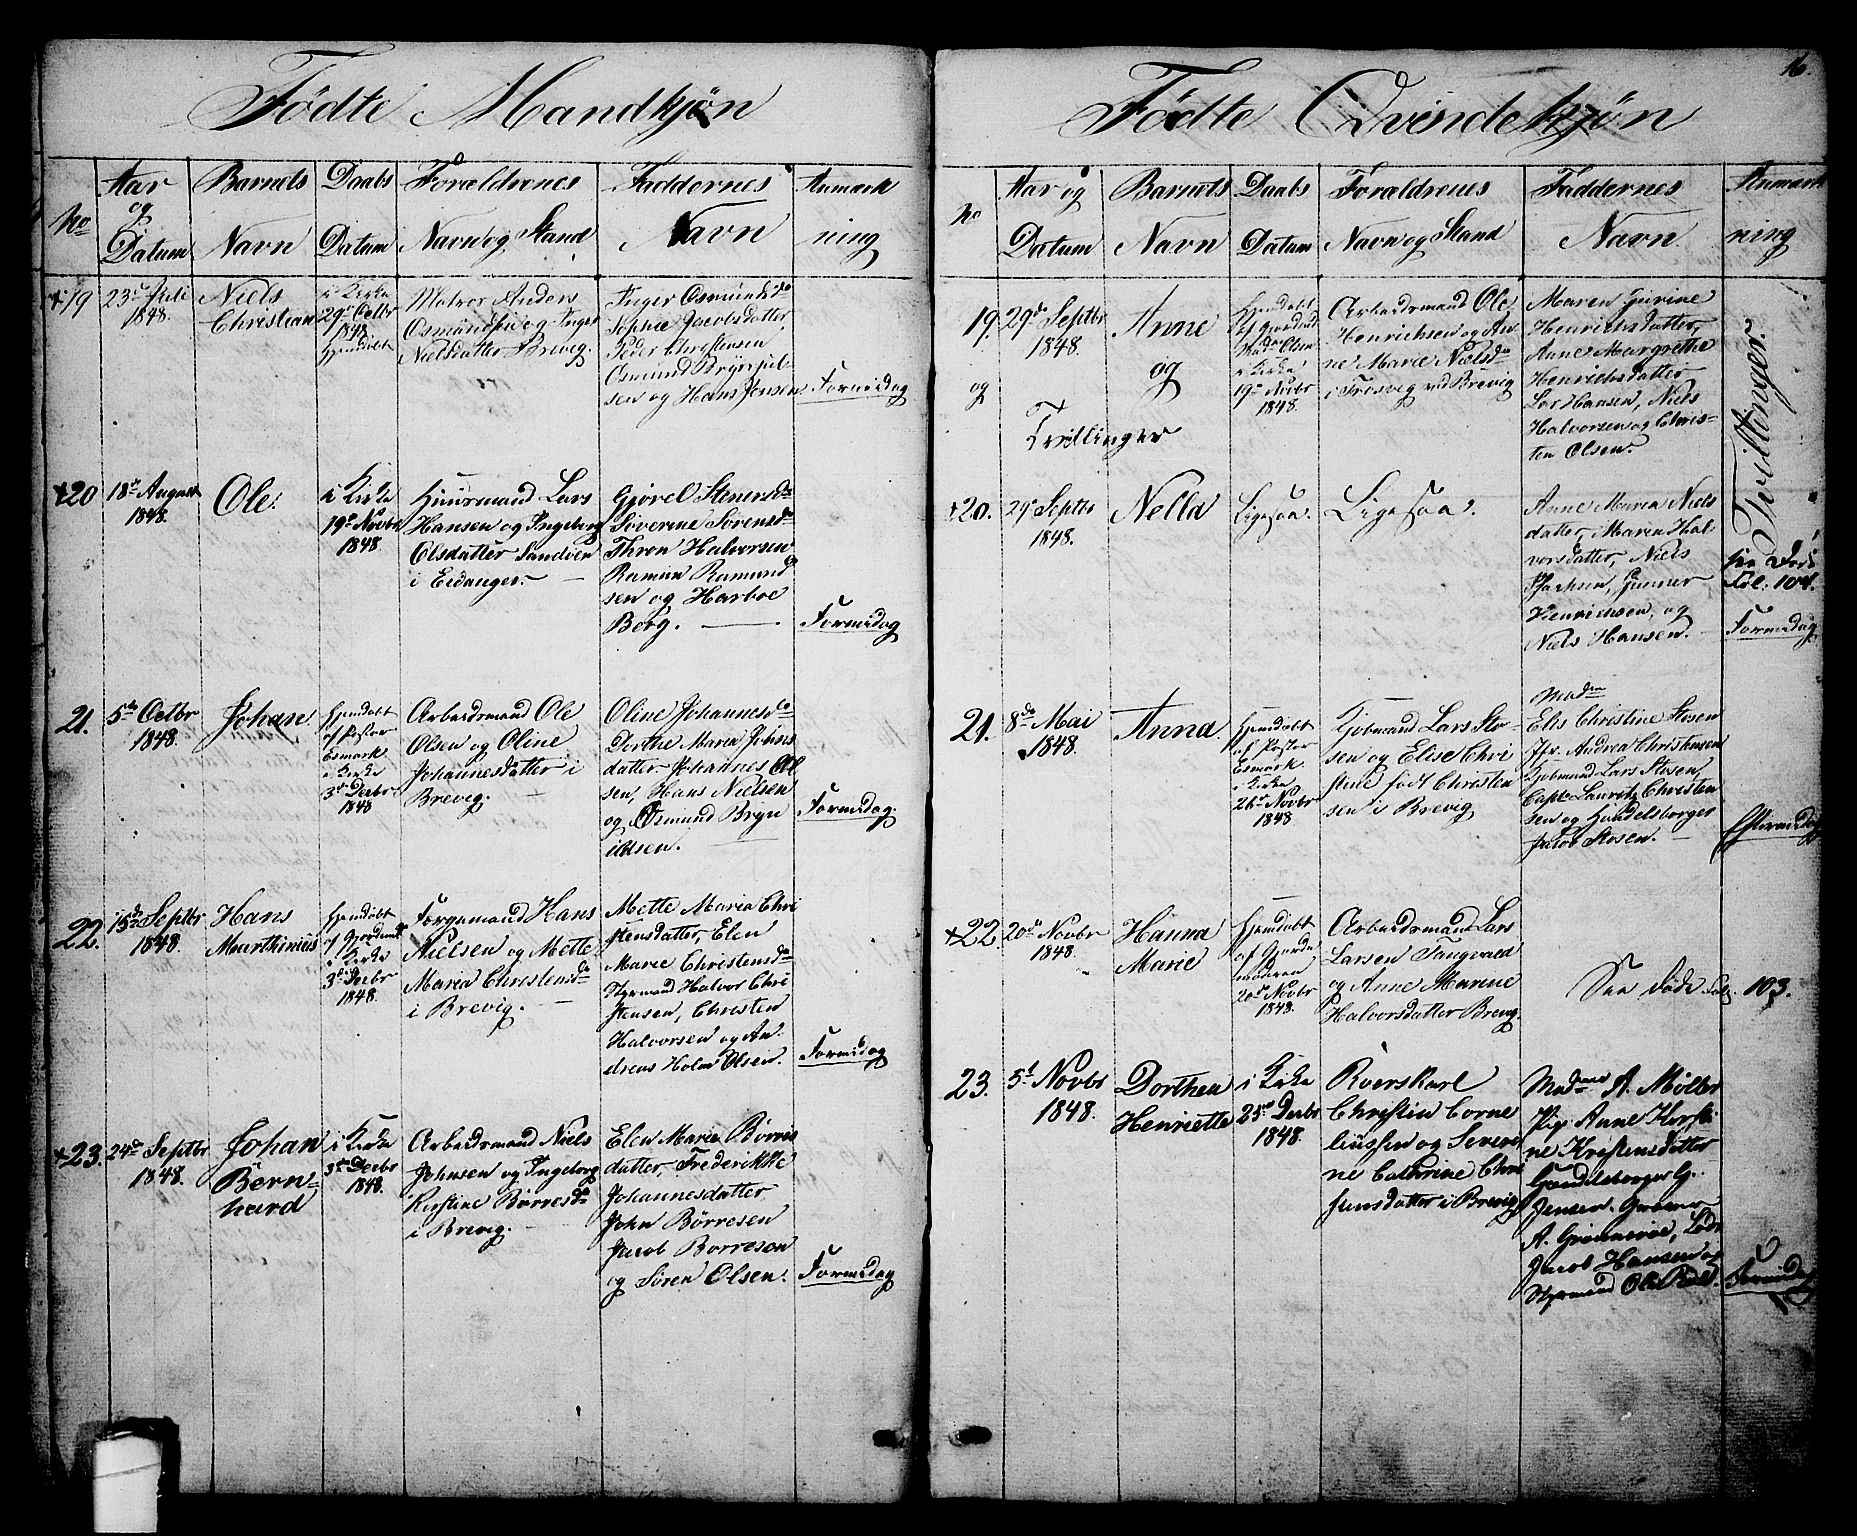 16.
Födte Mandkjøn
No
Aar og Datum
Barnets Navn
Daabs Datum
Forældrenes Navn og Stand
Faddernes Navn
Anmærkning
+19
23de Juli
1848.
Niels
Christian
i Kirke
29de Octbr
1848
hjemdøbt
Matros Anders
Osmundsen og Inger
Nielsdatter Brevig.
Inger Osmundsda
Sophie Jacobsdatter
Peder Christensen
Osmund Brynjul
sen og Hans Jensen.
Formidag
+20
18de August
1848.
Ole.
i Kirke
19de Novbr
1848.
Huusmand Lars
Hansen og Ingeborg
Olsdatter Sandøen
i Eidanger.
Gjøred Stenersda
Søverine Sørensda
Thron Halvorsen
Ramien Ramund
sen og Harboe
Borg.
Formidag
21.
5te Octbr
1848.
Johan
hjemdøbt
af Pastor
Esmark
i Kirke
3de Decbr
1848
Arbeidsmand Ole
Olsen og Oline
Johannesdatter i
Brevig.
Oline Johannesda
Dorthe Maria Johns
datter Johannes Ol
sen, Hans Nielsen
og Osmund Bryn
ildsen.
Formidag.
22.
15de Septbr
1848.
Hans
Marthinius
hjemdøbt
af Jordemd
i Kirke
3de Decbr
1848.
Færgemand Hans
Nielsen og Mette
Maria Christensda
i Brevig.
Mette Maria Chri
stensdatter, Elen
Marie Christensda
Styrmand Halvor Chri
stensen, Christen
Halvorsen og An
dreas Holm Olsen.
Formidag
+23.
24de Septbr
1848.
Johan
Bern-
hard
i Kirke
3de Decbr
1848.
Arbeidsmand Niels
Johnsen og Ingeborg
Kirstine Børresda
i Brevig.
Elen Marie Børres
datter, Frederikke
Johannesdatter
John Börresen
Jacob Borresen
og Søren Olsen.
Formidag
Födte Qvindekjön
No
Aar og Datum
Barnets Navn
Daabs Datum
Forældrenes Navn og Stand
Faddernes Navn
Anmærkning
19.
29de Septbr
1848.
Anne
og
og
Tvillinger
Hjemdøbt
af Jordmd
Mad. Olsen
i Kirke
19de Novbr
1848.
Arbeidsmand Ole
Henrichsen og An
ne Marie Nielsda
i Trosvig ved Brevig
Maren Gurine
Henrichsdatter,
Anne Margrethe
Henrichsdatter
Lars Hansen, Niels
Halvorsen og Chris-
ten Olsen.
Tvillinger.
+20.
29de Septbr
1848.
Nella
Ligesaa.
Ligesaa.
Anne Maria Niels
datter, Maren Hal
vorsdatter, Niels
Isachsen, Gunner
Henrichsen, og
Niels Hansen.
see Døde
Fol. 104.
Formidag
21.
8de Mai
1848.
Anna.
hjemdøbt
af Pastor
Esmark.
i Kirke
26de Novbr
1848
Kjøbmand Lars Sto-
sen og Elise Chri
stine født Christen
sen i Brevig
Madm
Elis Christine Stosen
Jfr. Andrea Christensen
Kjøbmand Lars Stosen
Capt. Lauritz Christen
sen og Handelsborger
Jacob Stosen.
Eftermidag
+22.
20de Novbr
1848.
Hanna
Marie
Hjemdøbt
af Jorde
moderen
20de Novbr
1848.
Arbeidsmand Lars
Larsen Tangvald
og Anne Marine
Halvorsdatter Brevig.
See døde Fol. 103.
23.
5te Novbr
1848.
Dorthea
Henriette
i Kirke
25de Decbr
1848.
Roerskarl
Christen Corne
liussen og Severi
ne Cathrine Chri
stensdatter i Brevig
Madme A. Møller
Pige Anne Kirsti
ne Kristensdatter
Handelsborger G.
Jensen.
A.
Jacob Hansen og
Styrmand Ole
Formidag